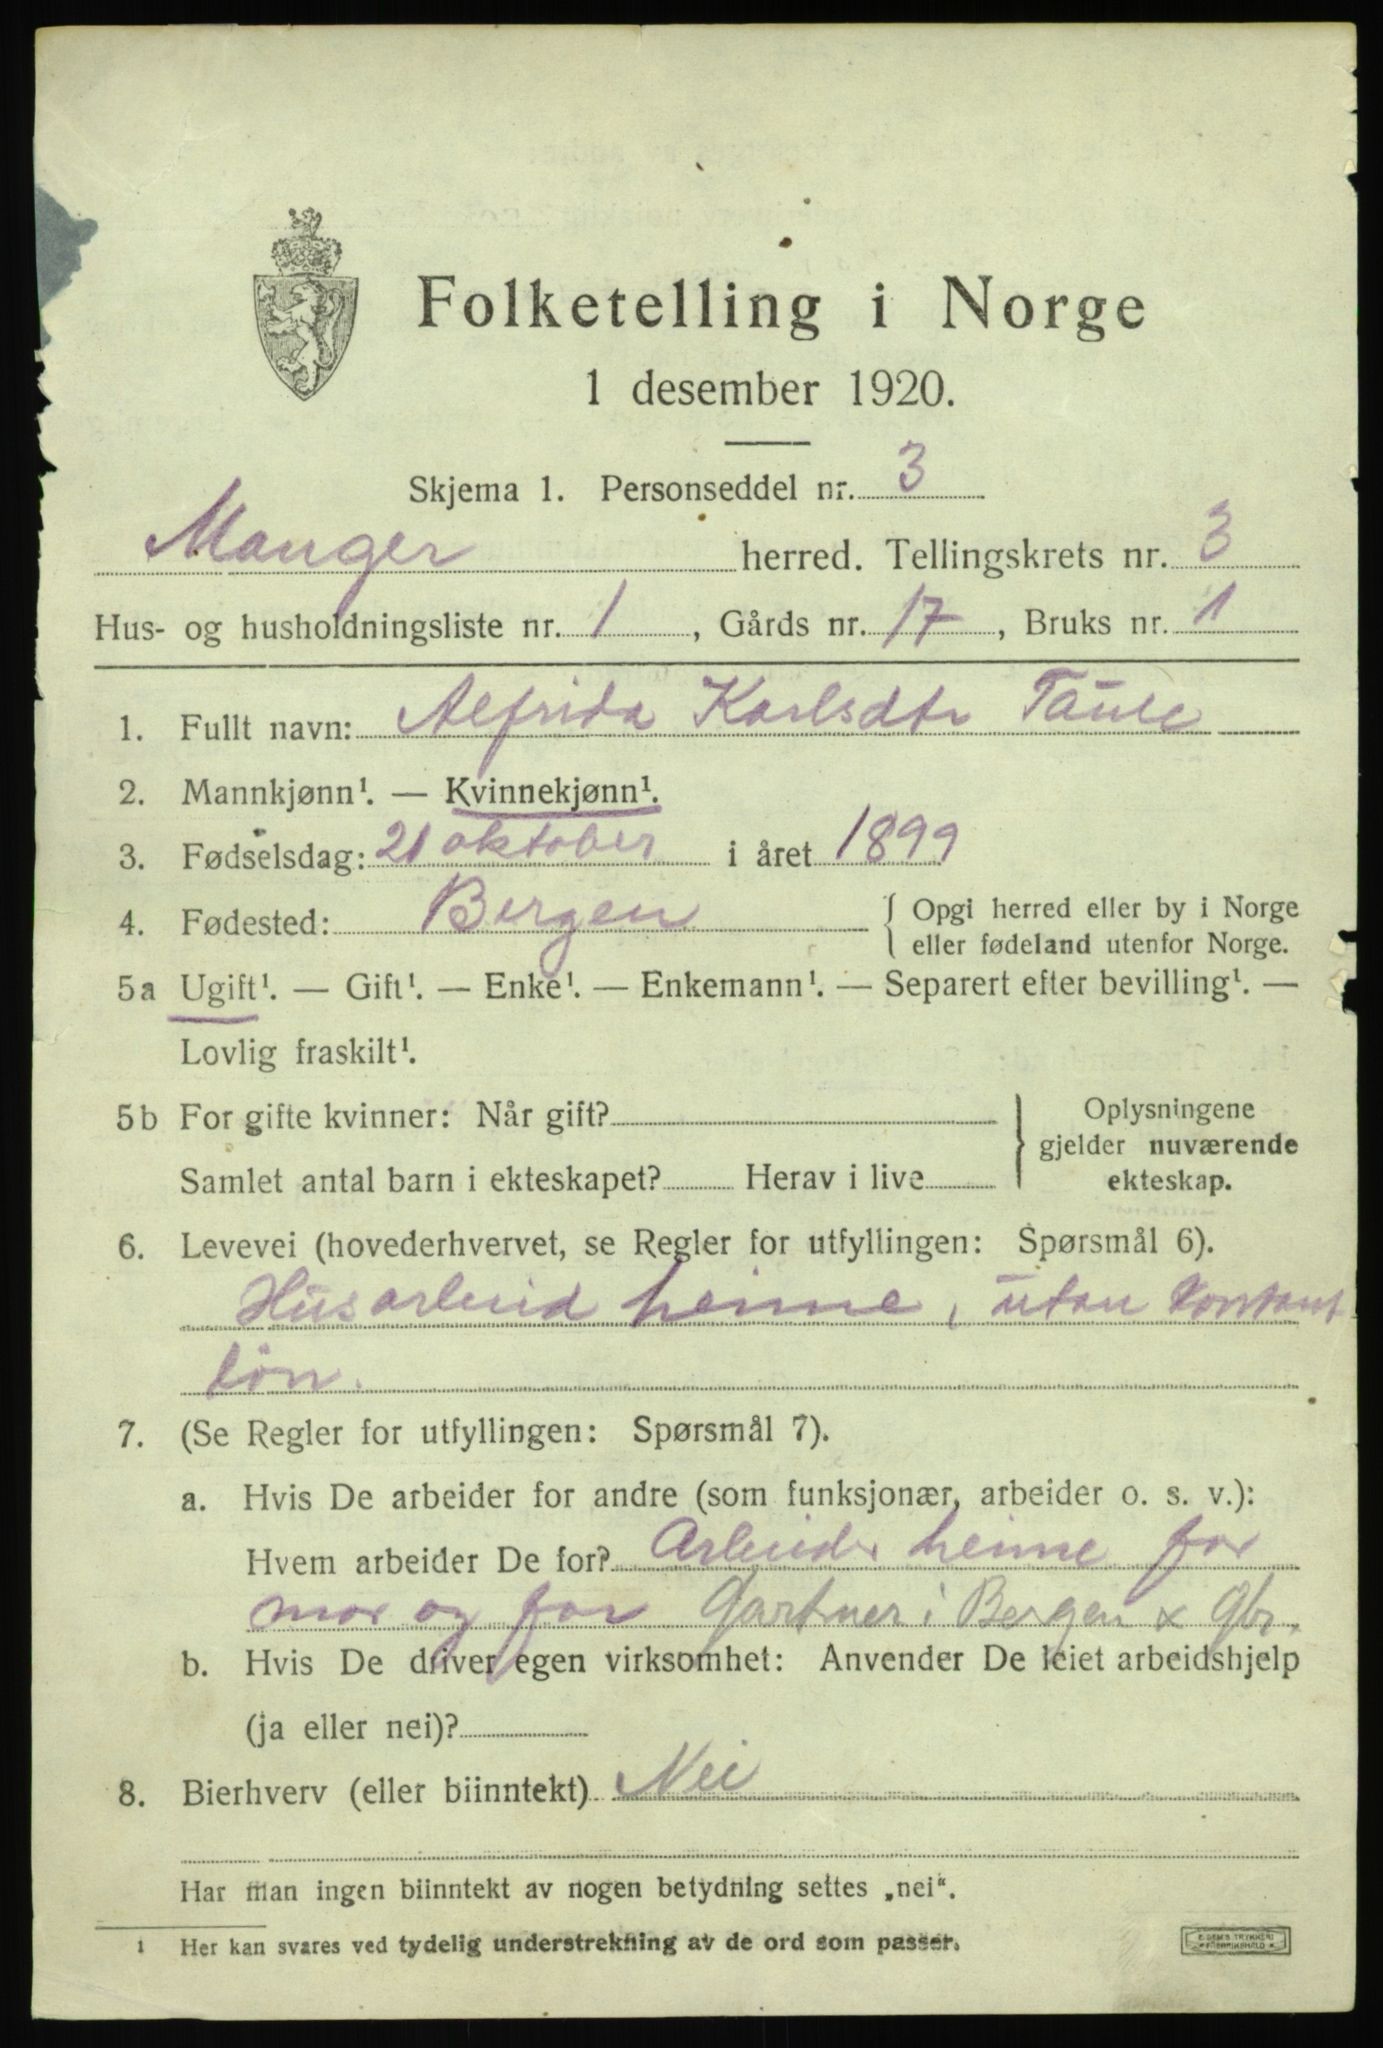 Folketelling i Norge
1 desember 1920.
Skjema 1. Personseddel nr. 3
Manger herred. Tellingskrets nr. 3
Hus- og husholdningsliste nr. 1, Gårds nr. 17, Bruks nr. 1
1. Fullt navn: Alfrida Karlsdtr Taule
2. Mannkjønn¹. — Kvinnekjønn¹.
3. Fødselsdag: 21 oktober i året 1899
4. Fødested: Bergen { Opgi herred eller by i Norge
eller fødeland utenfor Norge.
5a Ugift¹. — Gift¹. — Enke¹. — Enkemann¹. — Separert efter bevilling¹. —
Lovlig fraskilt¹.
5b For gifte kvinner: Når gift? } Oplysningene
gjelder nuværende
Samlet antal barn i ekteskapet? Herav i live ekteskap.
6. Levevei (hovederhvervet, se Regler for utfyllingen: Spørsmål 6).
Husarbeid heime, utan kontant
løn.
7. (Se Regler for utfyllingen: Spørsmål 7).
a. Hvis De arbeider for andre (som funksjonær, arbeider o. s. v.):
Hvem arbeider De for? Arbeider heime for
mor og far Gartner i Bergen x Gbr.
b. Hvis De driver egen virksomhet: Anvender De leiet arbeidshjelp
(ja eller nei)?
8. Bierhverv (eller biinntekt) Nei
Har man ingen biinntekt av nogen betydning settes „nei“.
¹ Her kan svares ved tydelig understrekning av de ord som passer.